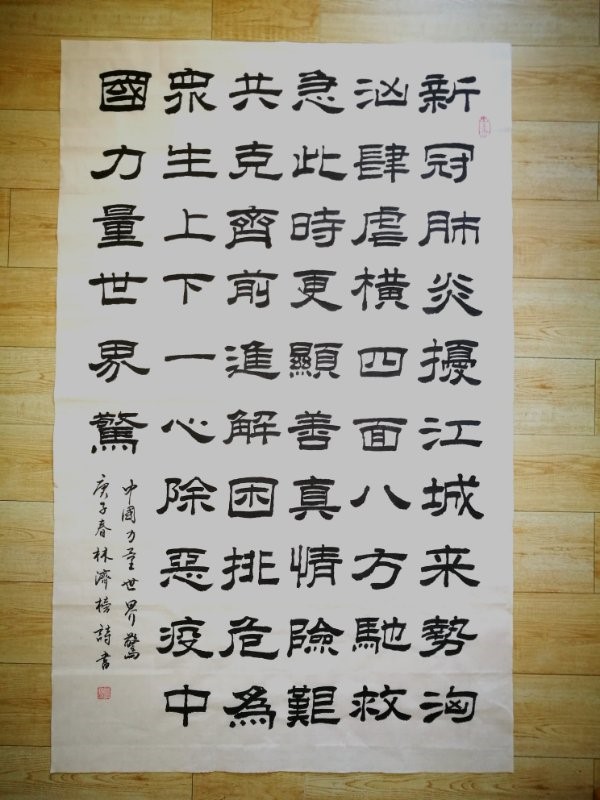 新冠肺炎擾江城来勢汹
汹肆虐橫四面八方馳救
急此時更顯善真情險艱
共克齊前進解困排危為
眾生上下一心除惡疫中
國力量世界驚
中國力量世界驚
庚子春林濟榜詩書